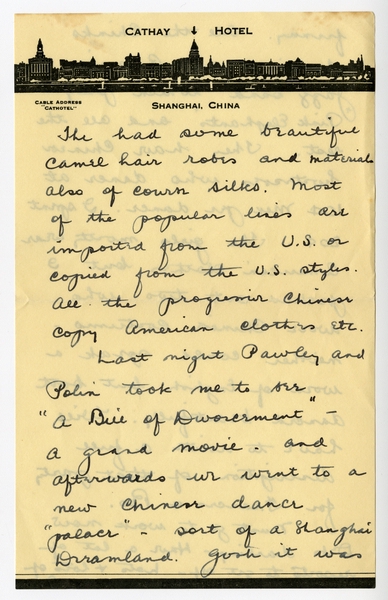 CATHAY HOTEL
CABLE ADDRESS
"CATHOTEL"
SHANGHAI, CHINA
The had some beautiful
camel hair robes and materials
also of course silks. Most
of the popular lines are
imported from the U.S. or
copied from the U.S. styles.
All the progressive Chinese
copy American clothes etc.
Last night Pawley and
Polin took me to see
"A Bill of Divorcement" –
a grand movie. and
afterwards we went to a
new Chinese dance
"palace" – sort of a Shanghai
Dreamland. Gosh it was